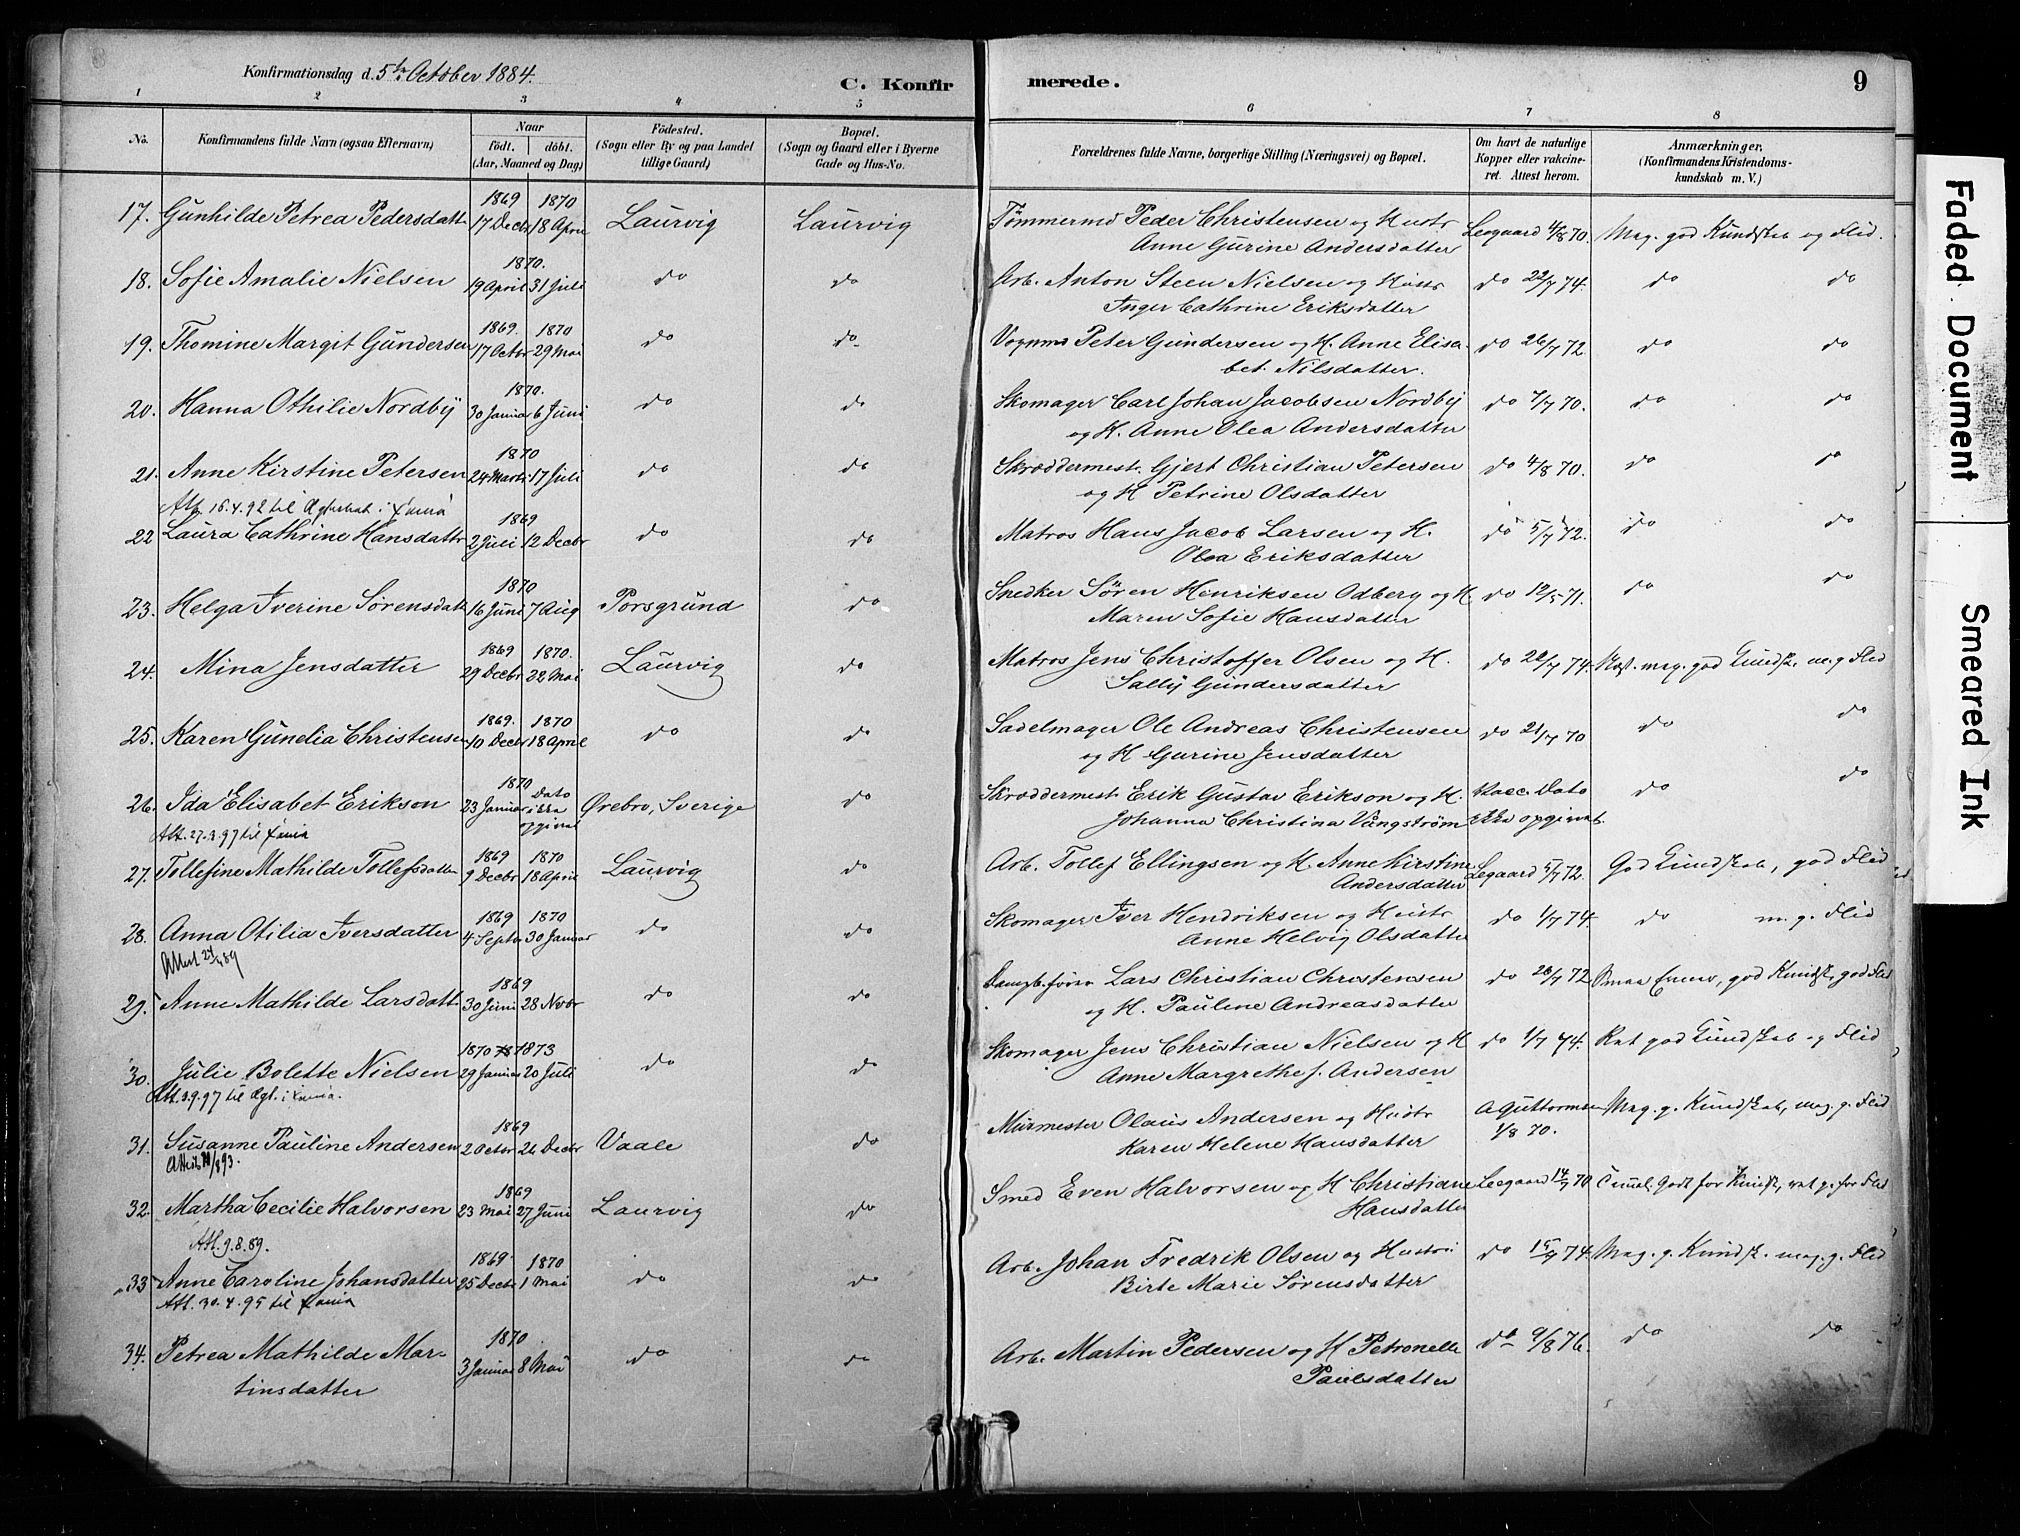 Konfirmationsdag d. 5te October 1884.
C. Konfir
merede.
9
1 2 3 4 5 6 7 8
No.
Konfirmandens fulde Navn (ogsaa Efternavn)
Naar
født. døbt.
(Aar, Maaned og Dag)
Fødested.
(Sogn eller By og paa Landet
tillige Gaard)
Bopæl.
(Sogn og Gaard eller i Byerne
Gade og Hus-No.
Forældrenes fulde Navne, borgerlige Stilling (Næringsvei) og Bopæl.
Om havt de naturlige
Kopper eller vakcine-
ret. Attest herom.
Anmærkninger,
(Konfirmandens Kristendoms-
kundskab m. V.)
1869 1870
17. Gunhilde Petrea Pedersdatt 17 Decbr 18 April Laurvig Laurvig Tømmermd Peder Christensen og Hustr Leegaard 4/8 70. Meg. god Kundskab og Flid.
Anne Gurine Andersdatter
1870.
18. Sofie Amalie Nielsen 19 April 31 Juli do do Arb. Anton Steen Nielsen og Hustr do 22/7 74. do do
Inger Cathrine Eriksdatter
1869. 1870
19. Thomine Margit Gundersen 17 Octbr 29 Mai do do Vognmd Peter Gundersen og H. Anne Elisa- do 26/7 72. do do
bet Nilsdatter.
1870.
20. Hanna Othilie Nordby 30 Januar 6 Juni do do Skomager Carl Johan Jacobsen Nordby do 7/7 70. do do
og H. Anne Olea Andersdatter
1870
21. Anne Kirstine Petersen 24 Marts 17 Juli do do Skræddermest. Gjert Christian Petersen do 4/8 70. do do
Att. 16.4.92 til Ægteskab i Xania
og H Petrine Olsdatter
1869
22 Laura Cathrine Hansdattr 2 Juli 12 Decbr do do Matros Hans Jacob Larsen og H. do 5/7 72. do do
Olea Eriksdatter
1870
23. Helga Iverine Sørensdatt 16 Juni 7 Aug Porsgrund do Snedker Søren Henriksen Odberg og H. do 12/5 71. do do
Maren Sofie Hansdatter
1869 1870.
24. Mina Jensdatter 29 Decbr 22 Mai Laurvig do Matros Jens Christoffer Olsen og H. do 22/7 74. Næst. meg. god Kundsk. m. g. Flid
Sally Gundersdatter
1869. 1870
25. Karen Gunelia Christensen 10 Decbr 18 April do do Sadelmager Ole Andreas Christensen do 21/7 70 do do
og H Gurine Jensdatter
1870
26. Ida Elisabet Erikson 23 Januar Dato ikke opgivet Ørebro, Sverige do Skræddermest Erik Gustav Erikson og H. Vacc. Dato do do
Att. 27.3.97 til Xania
Johanna Christina Vångström ikke opgivet.
1869 1870
27. Tollefine Mathilde Tollefsdatter 9 Decbr 18 April Laurvig do Arb. Tollef Ellingsen og H. Anne Kirstine Legaard 5/7 72. God Kundskab, god Flid
Andersdatter
1869 1870
28. Anna Otilia Iversdatter 4 Septbr 30 Januar do do Skomager Iver Hendriksen og Hustr do 1/7 74. do m. g. Flid
Anne Helvig Olsdatter
1869
29. Anne Mathilde Larsdatt 30 Juni 28 Novbr do do Dampb.fører Lars Christian Christensen do 26/7 72 god Kundsk, god Flid
og H. Pauline Andreasdatter
1870 1873
30. Julie Bolette Nielsen 29 Januar 20 Juli do do Skomager Jens Christian Nielsen og H do 1/7 74. Ret god Kundskab og Flid
Att. 3.9.97 til Ægt. i Xania.
Anne Margrethe f. Andersen
1869
31. Susanne Pauline Andersen 2 Octbr 26 Decbr Vaale do Murmester Olaus Andersen og Hustr A Guttormsen Meg. g. Kundskab, meg. g. Flid
Karen Helene Hansdatter 1/8 70.
1869
32. Martha Cecilie Halvorsen 23 Mai 27 Juni Laurvig do Smed Even Halvorsen og H Christiane Leegaard 14/7 70
Att. 9.8.89.
Hansdatter
1869. 1870
33 Anne Caroline Johansdatter 25 Decbr 1 Mai do do Arb. Johan Fredrik Olsen og Hustr do 15/9 74. Meg. g. Kundsk. meg. g. Flid
Att. 30.4.95 til Xania
Birte Marie Sørensdatter
1870
34. Petrea Mathilde Mar- 3 Januar 8 Mai do do Arb. Martin Pedersen og H Petronelle do 9/8 76. do do
tinsdatter
Paulsdatter
Faded Document
Smeared Ink